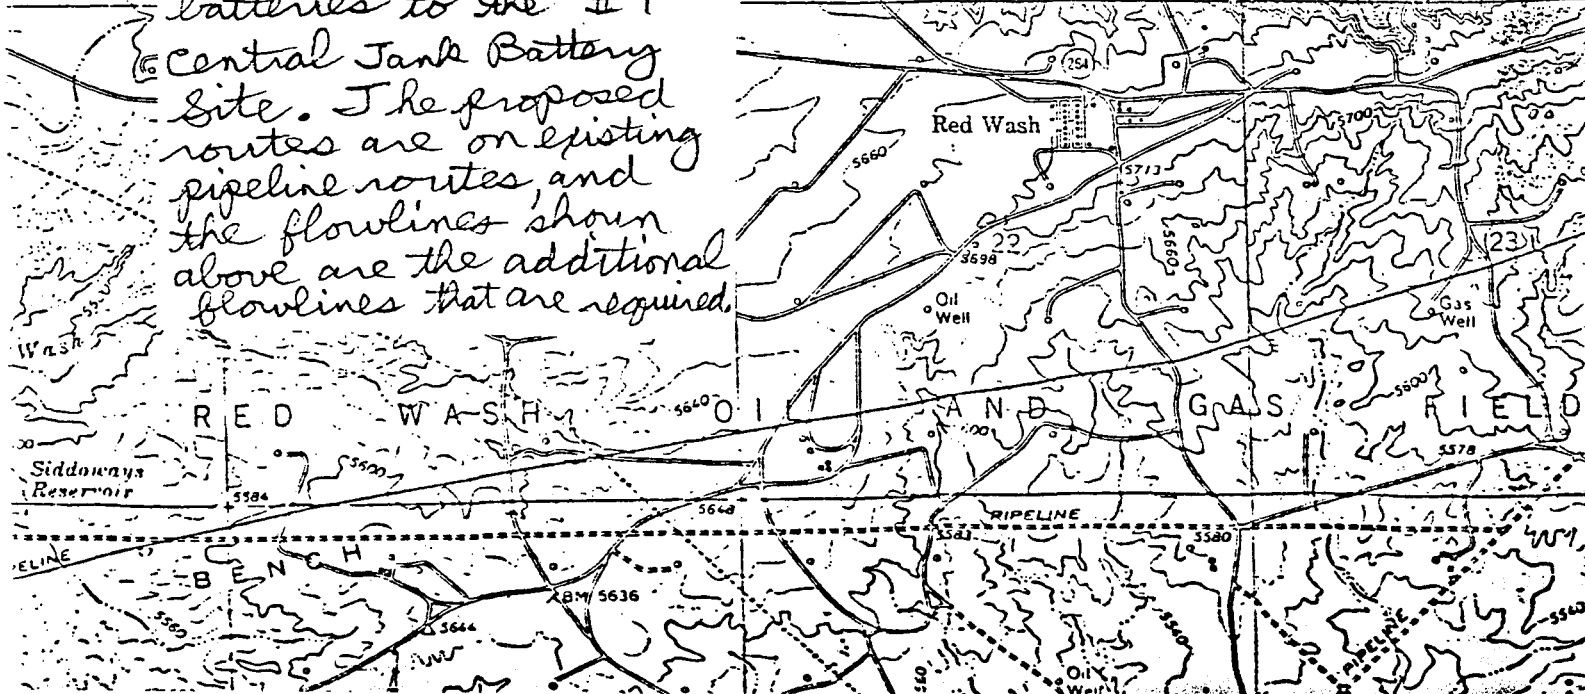 batteries to the #1
Central Tank Battery
Site. The proposed
routes are on existing
pipeline routes, and
the flowlines shown
above are the additional
flowlines that are required.
264
Red Wash
5700
5660
5713
22
5698
5660
23
Oil
Well
Gas
Well
Wash
5640
RED WASH OIL AND GAS FIELD
5600
5600
5578
Siddoways
Reservoir
5584
5648
PIPELINE
5583
5580
BENCH
BM 5636
5560
5644
5560
5540
PIPELINE
Oil
Well